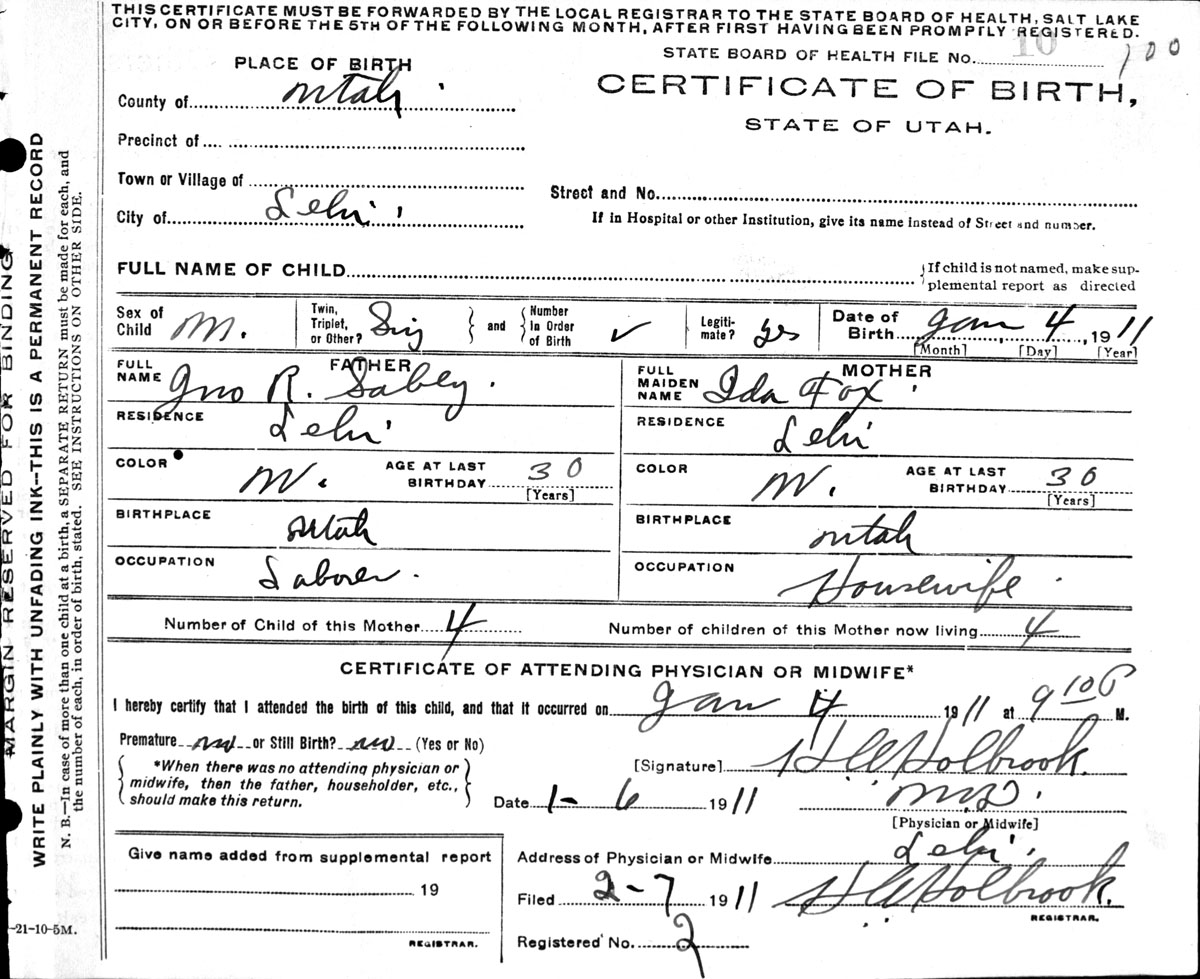 THIS CERTIFICATE MUST BE FORWARDED BY THE LOCAL REGISTRAR TO THE STATE BOARD OF HEALTH, SALT LAKE
CITY, ON OR BEFORE THE 5TH OF THE FOLLOWING MONTH, AFTER FIRST HAVING BEEN PROMPTLY REGISTERED.
STATE BOARD OF HEALTH FILE No. 10 100
PLACE OF BIRTH
CERTIFICATE OF BIRTH,
STATE OF UTAH.
County of Utah
Precinct of
Town or Village of
Street and No.
City of Lehi
If in Hospital or other Institution, give its name instead of Street and number.
FULL NAME OF CHILD
If child is not named, make sup-
plemental report as directed
Sex of Child M.
Twin, Triplet, or Other? Sing and Number In Order of Birth ✓
Legiti-mate? yes
Date of Birth Jan 4, 1911
[Month] [Day] [Year]
FATHER
MOTHER
FULL NAME Jno R. Sabey.
FULL MAIDEN NAME Ida Fox
RESIDENCE Lehi
RESIDENCE Lehi
COLOR W. AGE AT LAST BIRTHDAY 30
[Years]
COLOR W. AGE AT LAST BIRTHDAY 30
[Years]
BIRTHPLACE Utah
BIRTHPLACE Utah
OCCUPATION Laborer.
OCCUPATION Housewife.
Number of Child of this Mother 4
Number of children of this Mother now living 4
CERTIFICATE OF ATTENDING PHYSICIAN OR MIDWIFE*
I hereby certify that I attended the birth of this child, and that it occurred on Jan 4 1911 at 9 10 P M.
Premature no or Still Birth? no (Yes or No)
*When there was no attending physician or
midwife, then the father, householder, etc.,
should make this return.
[Signature] Holbrook.
Date 1-6 1911
M.D.
[Physician or Midwife]
Give name added from supplemental report
19
REGISTRAR.
Address of Physician or Midwife Lehi
Filed 2-7 1911 Holbrook.
REGISTRAR.
Registered No. 2
-21-10-5M.
MARGIN RESERVED FOR BINDING
WRITE PLAINLY WITH UNFADING INK--THIS IS A PERMANENT RECORD
N. B.—In case of more than one child at a birth, a SEPARATE RETURN must be made for each, and
the number of each, in order of birth, stated. SEE INSTRUCTIONS ON OTHER SIDE.